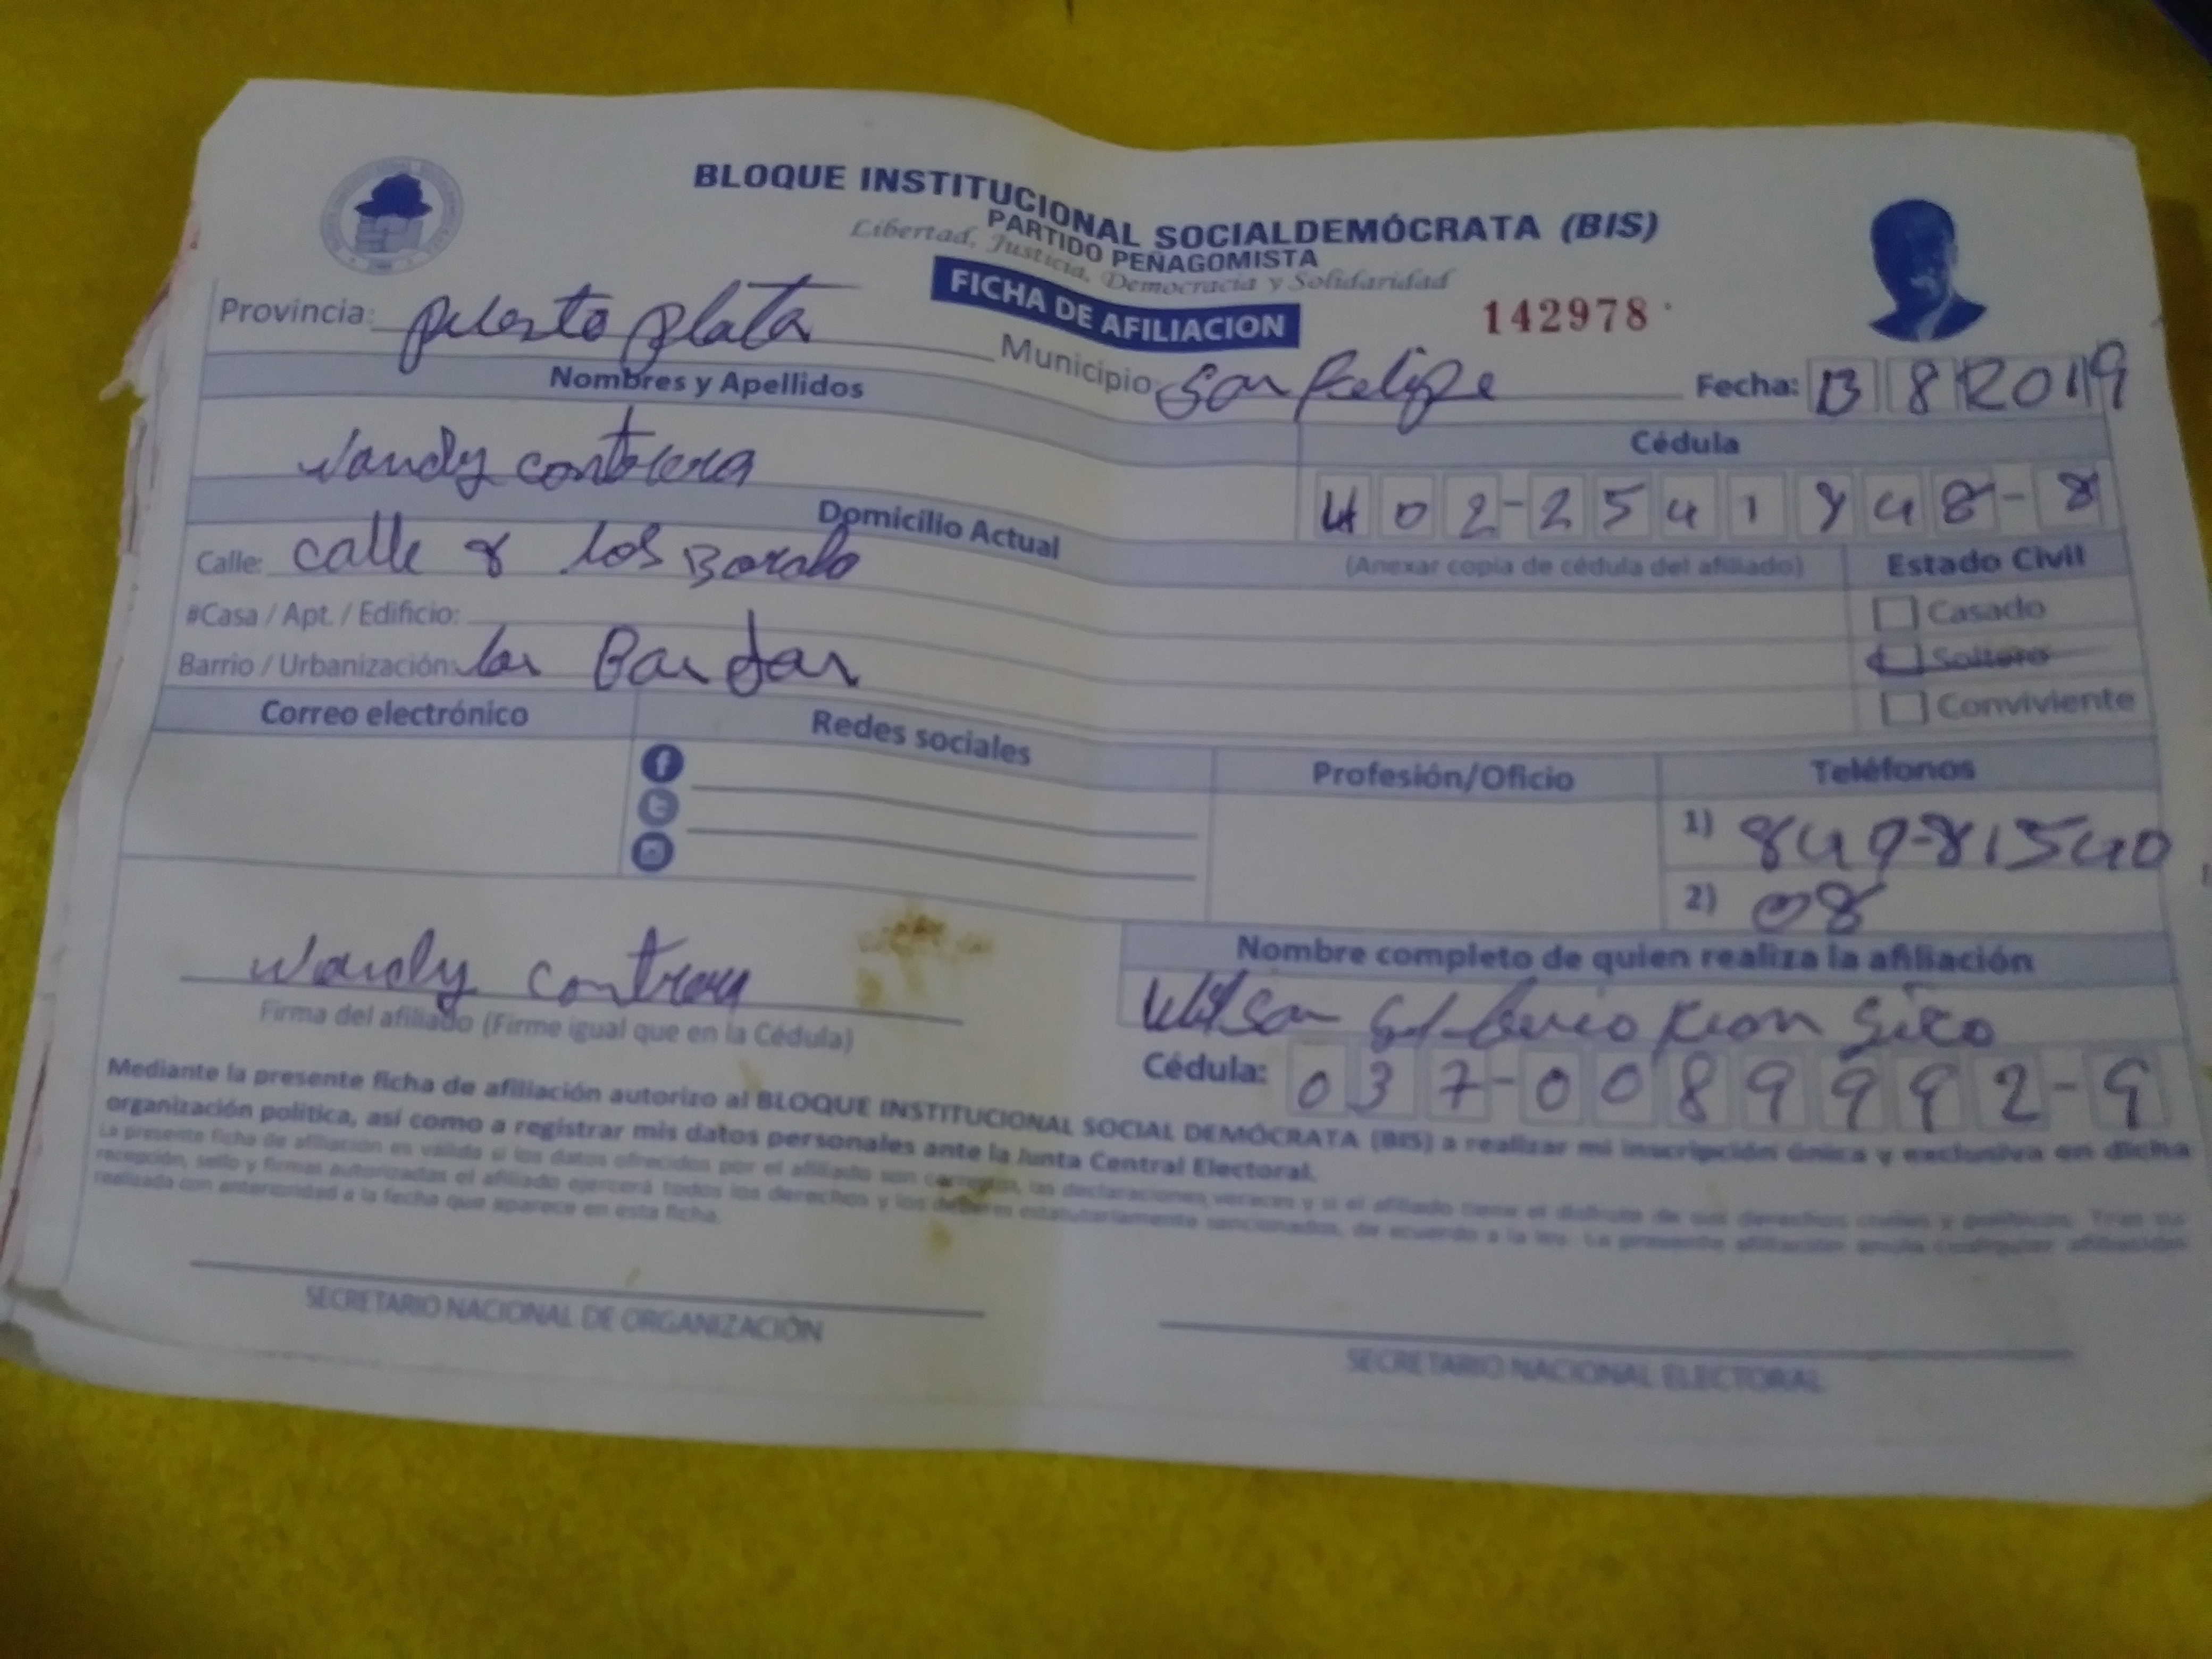 BLOQUE INSTITUCIONAL SOCIALDEMÓCRATA (BIS)
PARTIDO PEÑAGOMISTA
Libertad, Justicia, Democracia y Solidaridad
FICHA DE AFILIACION
142978
Provincia: puerto plata Municipio: San Felipe Fecha: 13 8 2019
Nombres y Apellidos
Wandy contrera
Cédula
402-2541848-8
(Anexar copia de cédula del afiliado)
Domicilio Actual
Calle: calle 8 los
#Casa / Apt. / Edificio:
Barrio / Urbanización:
Estado Civil
Casado
Soltero
Conviviente
Correo electrónico
Redes sociales
Profesión/Oficio
Teléfonos
1) 849-81540
2) 08
Wandy contrera
Firma del afiliado (Firme igual que en la Cédula)
Nombre completo de quien realiza la afiliación
Wilson
Cédula: 037-0089992-9
Mediante la presente ficha de afiliación autorizo al BLOQUE INSTITUCIONAL SOCIAL DEMÓCRATA (BIS) a realizar mi inscripción única y exclusiva en dicha
organización política, así como a registrar mis datos personales ante la Junta Central Electoral.
La presente ficha de afiliación es válida si los datos ofrecidos por el afiliado son correctos, las declaraciones veraces y si el afiliado tiene el disfrute de sus derechos civiles y políticos. Tras su
recepción, sello y firmas autorizadas el afiliado ejercerá todos los derechos y los deberes estatutariamente sancionados, de acuerdo a la ley. La presente afiliación anula cualquier afiliación
realizada con anterioridad a la fecha que aparece en esta ficha.
SECRETARIO NACIONAL DE ORGANIZACIÓN
SECRETARIO NACIONAL ELECTORAL